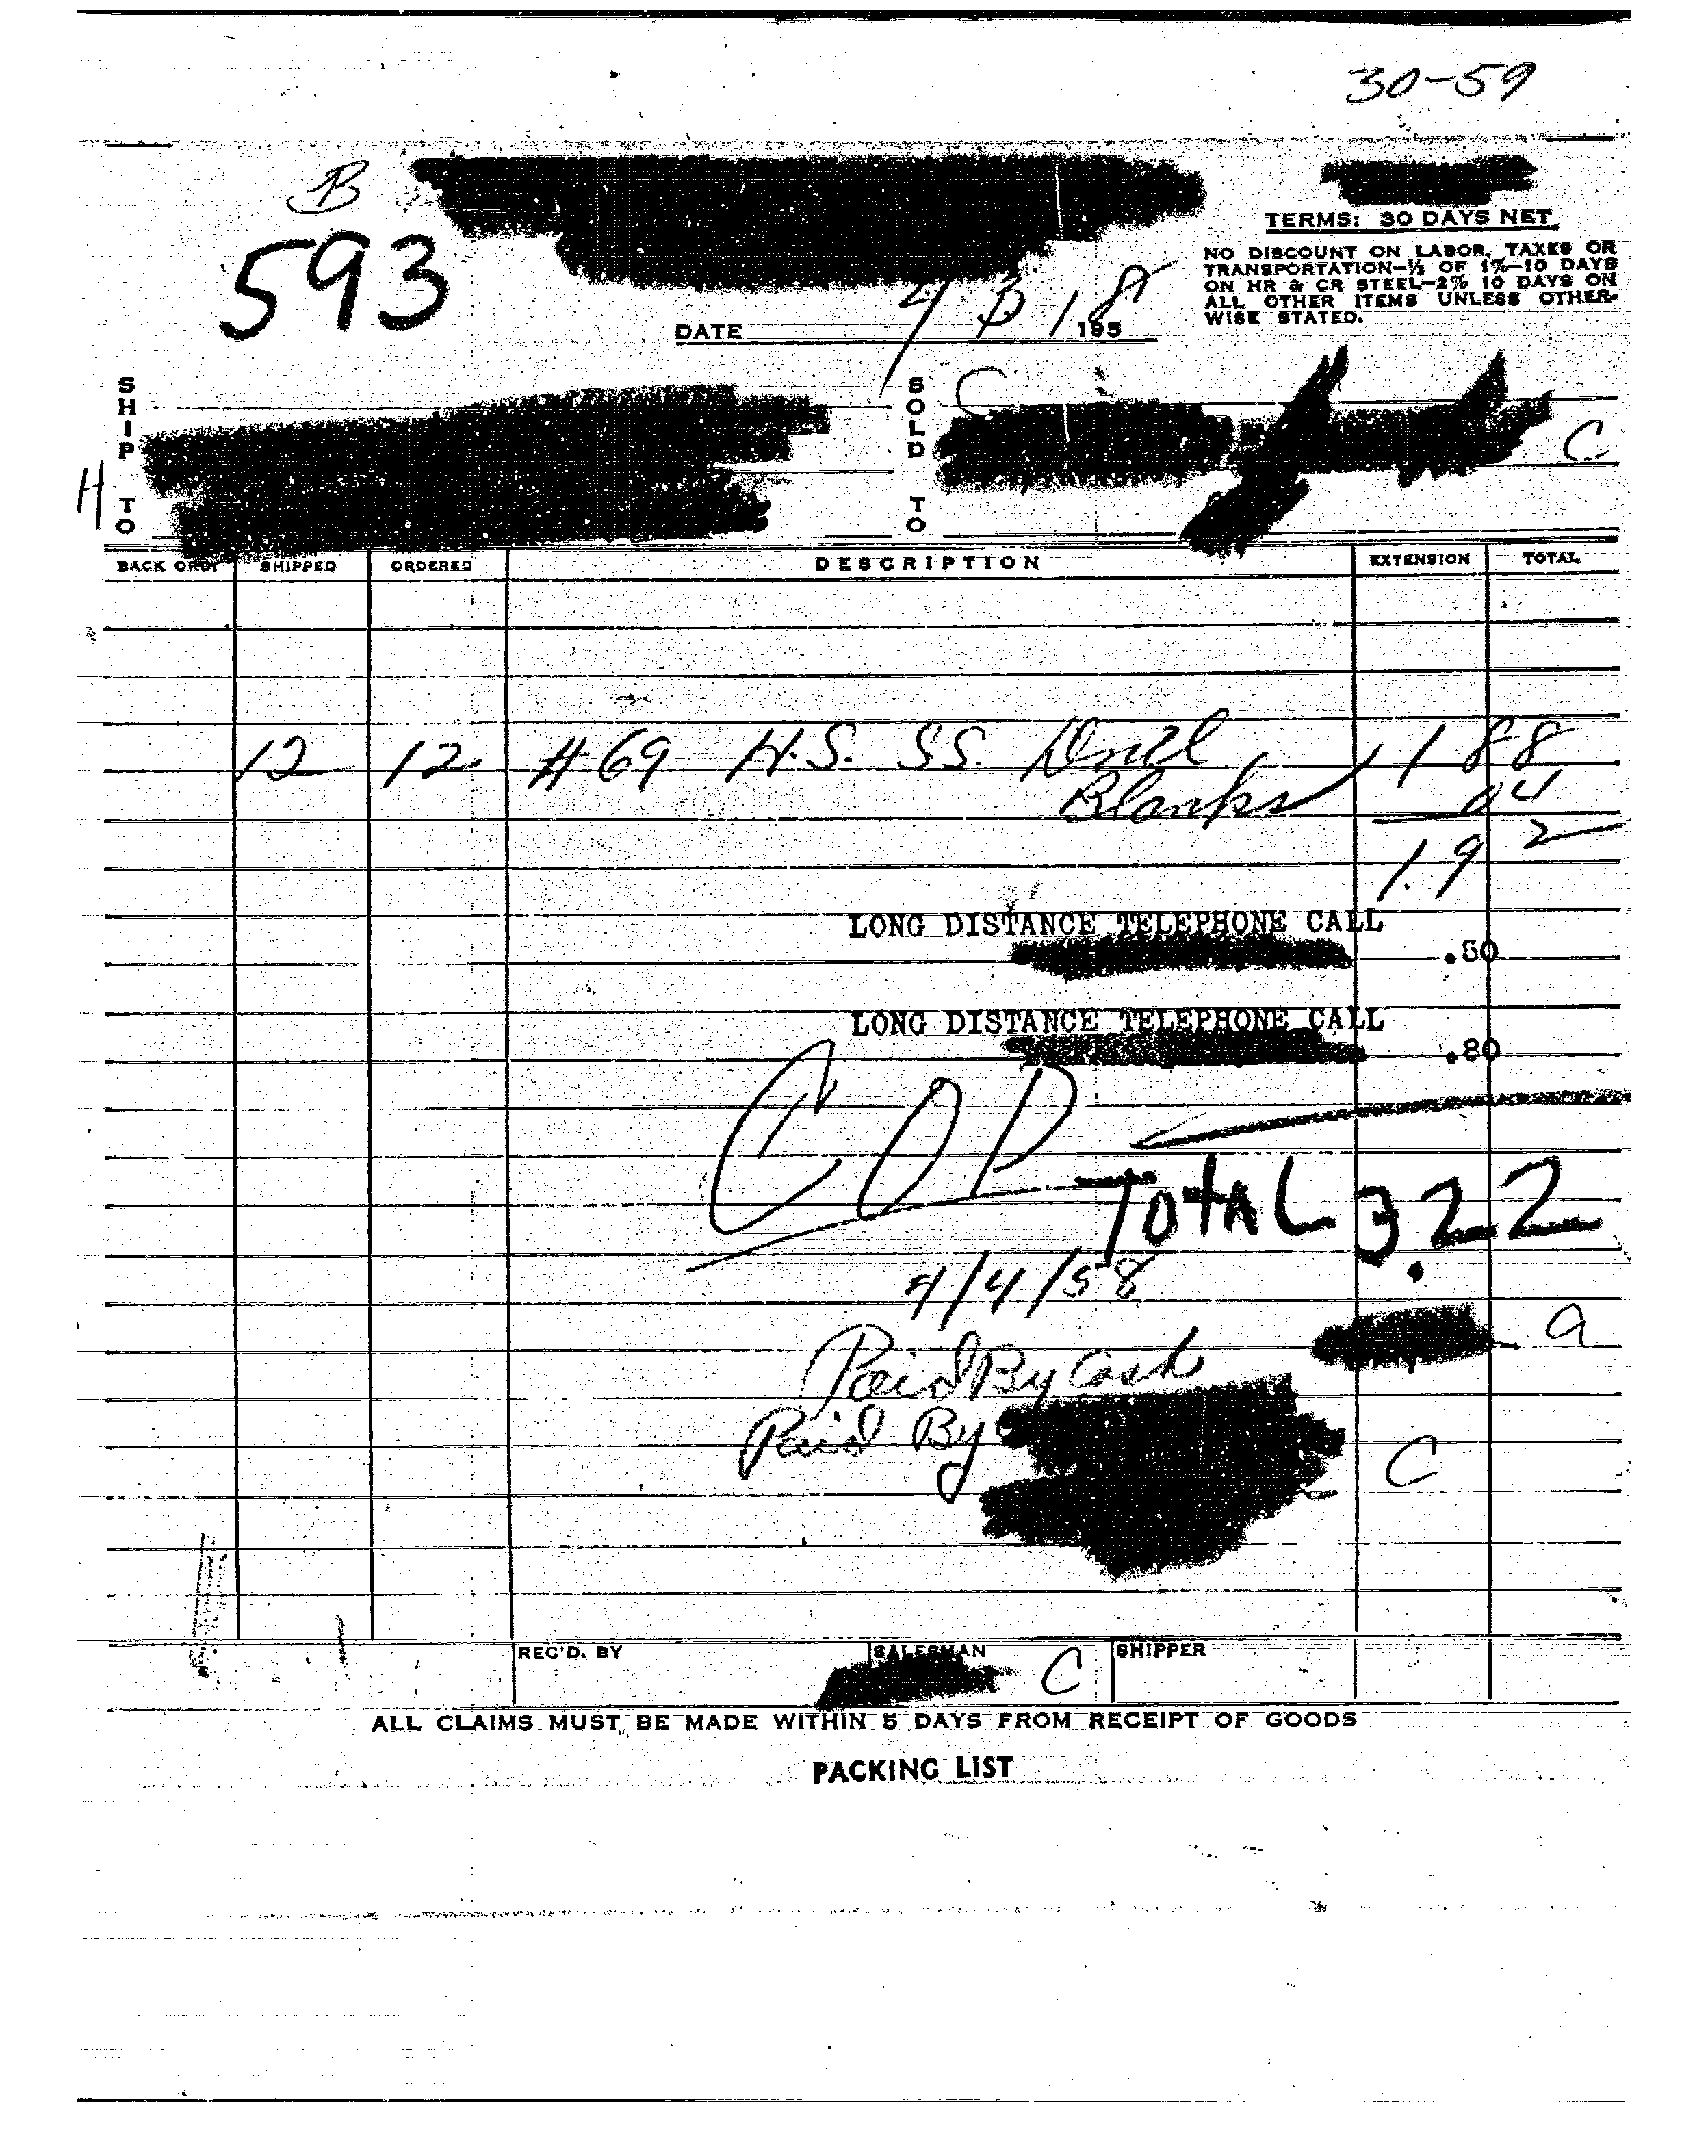 30-59
B
593
TERMS: 30 DAYS NET
NO DISCOUNT ON LABOR, TAXES OR
TRANSPORTATION—½ OF 1%—10 DAYS
ON HR & CR STEEL—2% 10 DAYS ON
ALL OTHER ITEMS UNLESS OTHER-
WISE STATED.
DATE 4/3/ 1958
SHIP TO
SOLD TO
C
C
H
BACK ORD. SHIPPED ORDERED DESCRIPTION EXTENSION TOTAL
12 12 #69 H.S. SS. Drill 1 88
Blanks 04
1.92
LONG DISTANCE TELEPHONE CALL
.50
LONG DISTANCE TELEPHONE CALL
.80
COD
TOTAL 3.22
4/4/58
a
Paid By Cash
Paid By
C
REC'D. BY SALESMAN C SHIPPER
ALL CLAIMS MUST BE MADE WITHIN 5 DAYS FROM RECEIPT OF GOODS
PACKING LIST